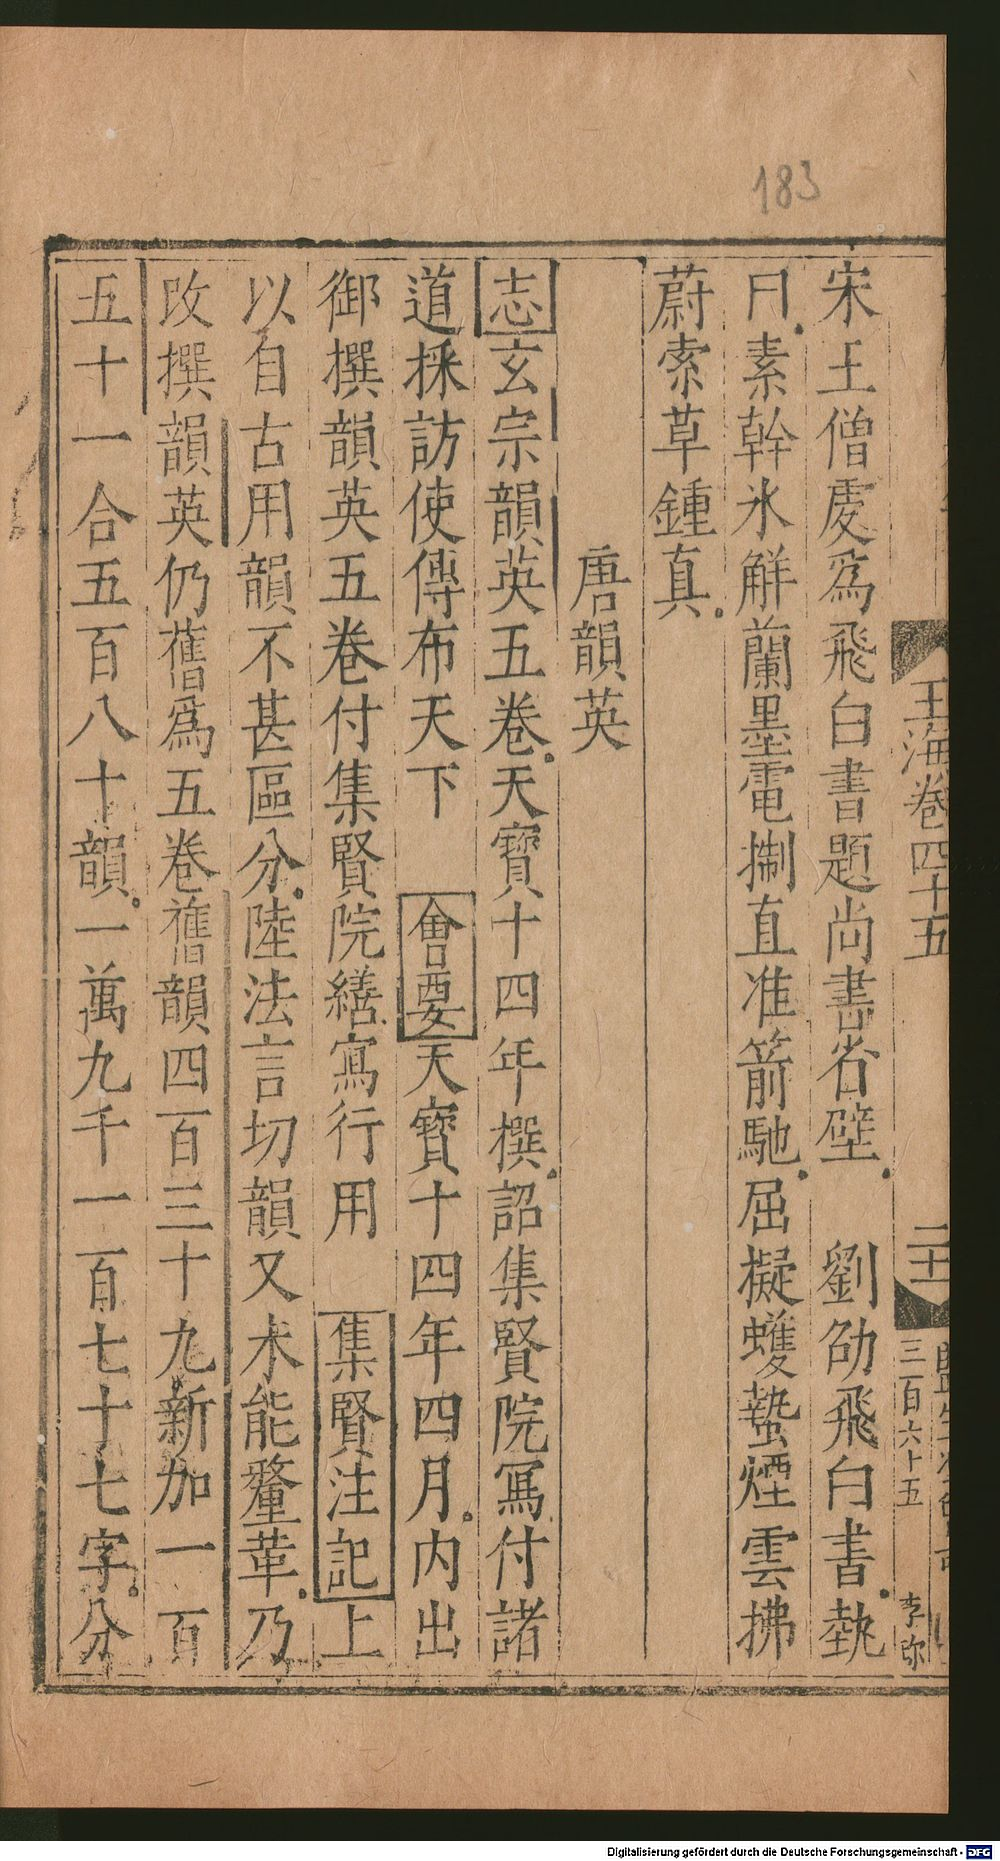 183
宋王僧虔爲飛白書題尚書省壁 劉劭飛白書埶
曰素幹氷解蘭墨電掣直准箭馳屈擬蠖蟄煙雲拂
蔚索草鍾真
唐韻英
志玄宗韻英五卷天寶十四年撰詔集賢院冩付諸
道採訪使傳布天下 會要天寶十四年四月内出
御撰韻英五卷付集賢院繕寫行用 集賢注記上
以自古用韻不甚區分陸法言切韻又未能釐革乃
改撰韻英仍舊爲五卷舊韻四百三十九新加一百
五十一合五百八十韻一萬九千一百七十七字分
玉海卷四十五
二十一
三百六十五
李弥
Digitalisierung gefördert durch die Deutsche Forschungsgemeinschaft - DFG